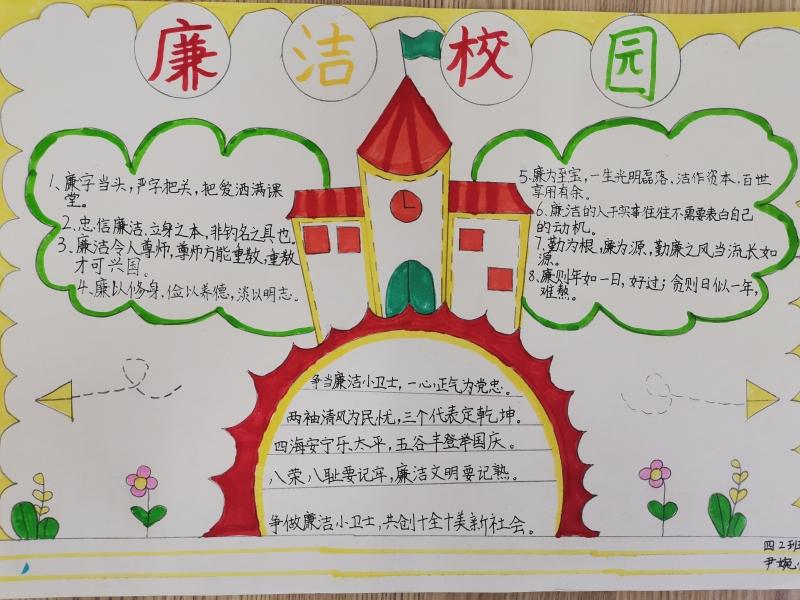 廉洁校园
1、廉字当头，严字把关，把爱洒满课
堂。
2、忠信廉洁，立身之本，非钓名之具也。
3、廉洁令人尊师，尊师方能重教，重教
才可兴国。
4、廉以修身，俭以养德，淡以明志。
5、廉为至宝，一生光明磊落，洁作资本，百世
享用有余。
6、廉洁的人干实事往往不需要表白自己
的动机。
7、勤为根，廉为源，勤廉之风当流长如
源。
8、廉则年如一日，好过；贪则日似一年，
难熬。
争当廉洁小卫士，一心正气为党忠。
两袖清风为民忧，三个代表定乾坤。
四海安宁乐太平，五谷丰登举国庆。
八荣八耻要记牢，廉洁文明要记熟。
争做廉洁小卫士，共创十全十美新社会。
四2班
尹婉